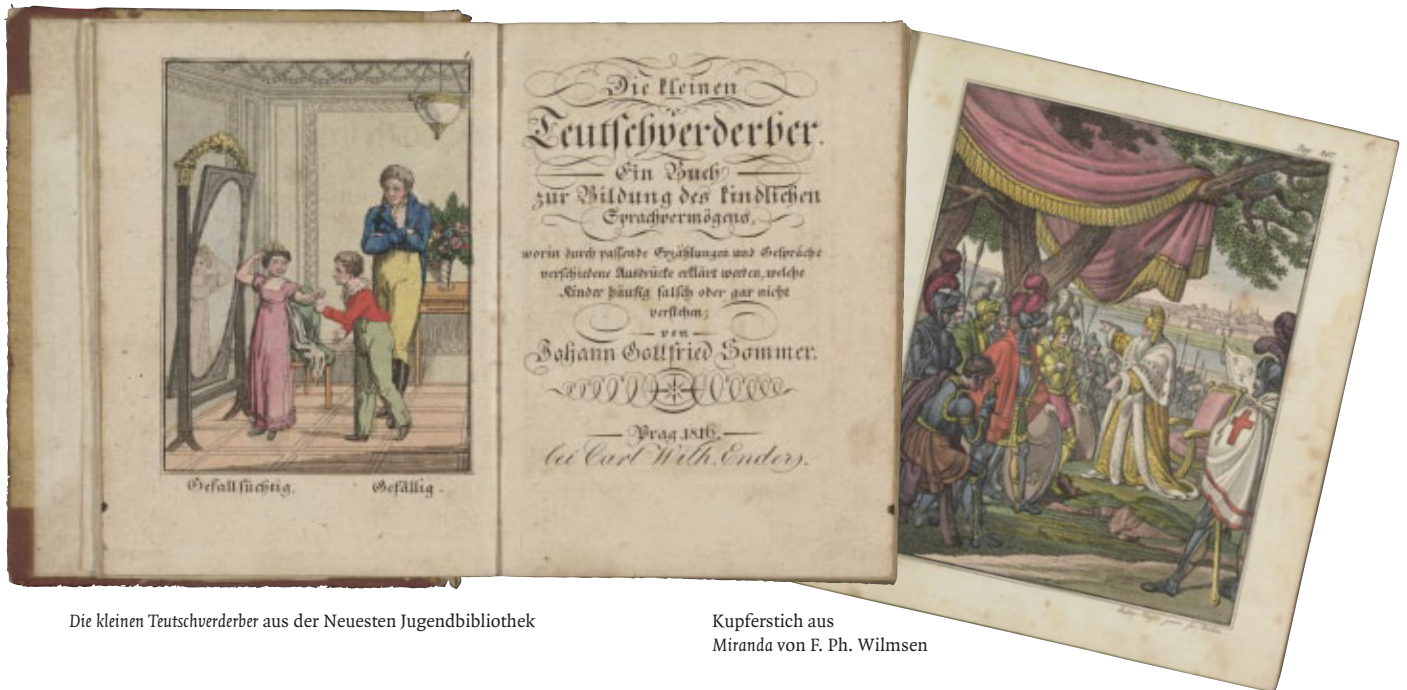 Gefallsüchtig. Gefällig.
Die kleinen
Teutschverderber.
Ein Buch
zur Bildung des kindlichen
Sprachvermögens,
worin durch passende Erzählungen und Gespräche
verschiedene Ausdrücke erklärt werden, welche
Kinder häufig falsch oder gar nicht
verstehen;
von
Johann Gottfried Sommer.
Prag 1816.
bei Carl Wilh. Enders.
Die kleinen Teutschverderber aus der Neuesten Jugendbibliothek
Kupferstich aus
Miranda von F. Ph. Wilmsen